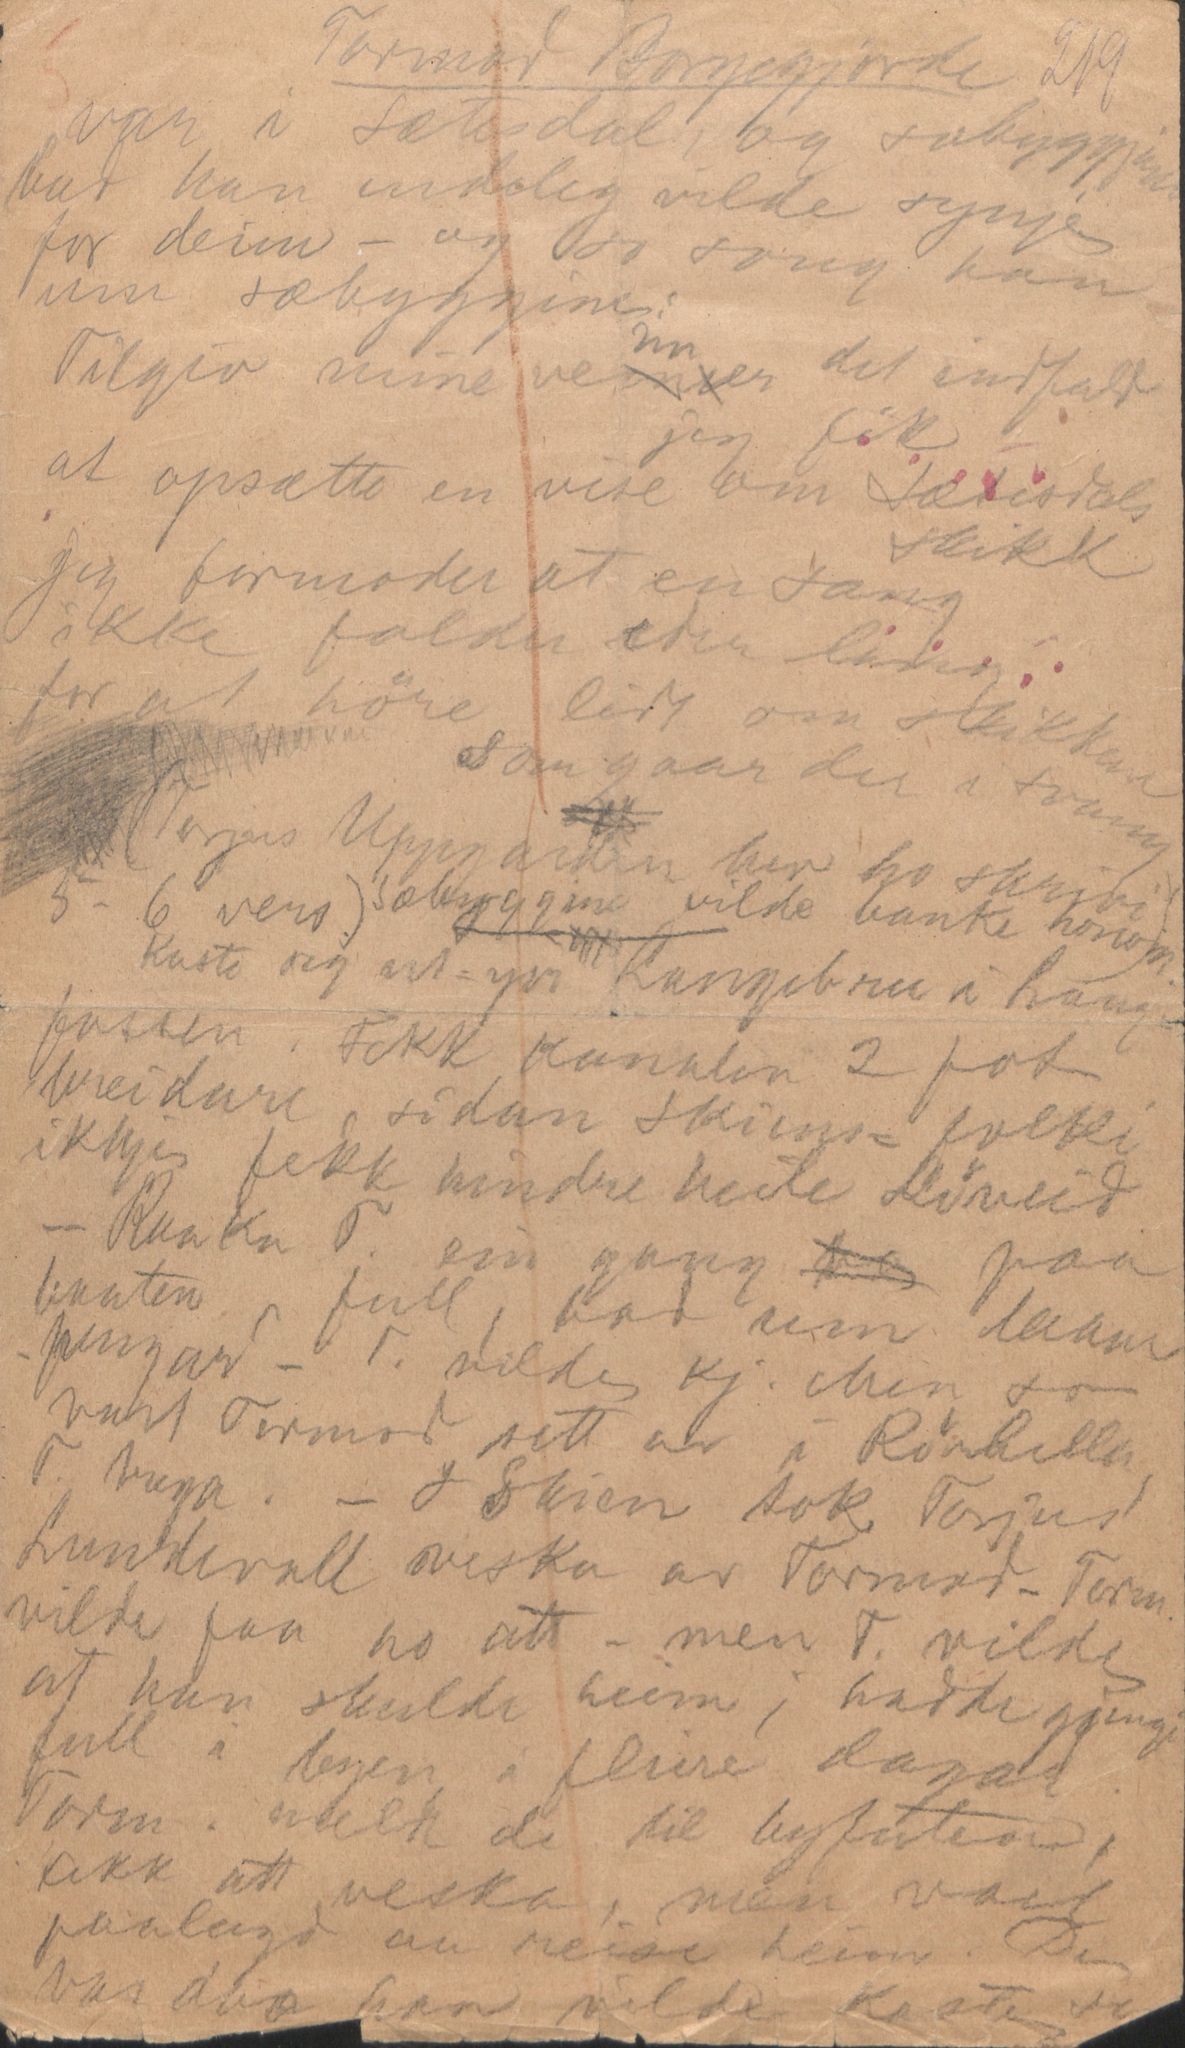 Tormod Borgegjorde 219
var i Sætesdal, og sæbyggjine
bad han endeleg vilde syngje
for deim – og so song han
um sæbyggine:
Tilgiv mine venner det indfald
jeg fik
at opsætte en vise om Sætesdals
skikk
jeg formoder at en sang
ikke falder eder lang
for at höre lidt om skikken
som gaar der i svang
(Torjus Uppgarden her ho skrivi
5–6 vers) Sæbyggine vilde banke honom
Kaste seg ut-yver Langebrui i Haug-
fossen. Fekk kanalen 2 fot
breidare, sidan Skiens-folki
ikkje fekk hindre heile Löveid
– Raaka T. ein gang paa
baaten, full, bad um laane
pengar – T. vilde kj. Men so
vart Tormod sett av i
T. – I Skien tok Torjus
Lundevall veska av Tormod – Torm.
vilde faa ho att – men T. vilde
at han skulde heim, hadde gjengi
full i byen i fleire dagar.
Torm. melte de til byfuten,
fekk att veska, men vart
paalagd au reise heim. De
var daa han vilde kaste se